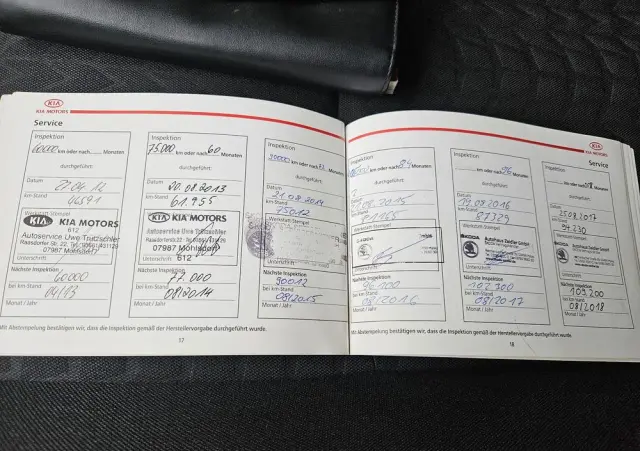 KIA
KIA MOTORS
Service
Inspektion
60000 km oder nach Monaten
durchgeführt:
Datum
27.06.12
km-Stand
46591
Werkstatt-Stempel
KIA MOTORS
612
Autoservice Uwe Trützschler
Raasdorfer Str. 22
07987 Mohlsdorf
Unterschrift
Nächste Inspektion
60000
bei km-Stand
04/13
Monat / Jahr
Inspektion
75000 km oder nach 60 Monaten
durchgeführt:
Datum
20.08.2013
km-Stand
61.955
KIA MOTORS
Autoservice Uwe Trützschler
07987 Mohlsdorf
612
Unterschrift
Nächste Inspektion
77.000
bei km-Stand
08/2014
Monat / Jahr
Inspektion
90000 km oder nach Monaten
durchgeführt:
Datum
21.08.2014
km-Stand
75012
Werkstatt-Stempel
Unterschrift
Nächste Inspektion
90012
bei km-Stand
08/2015
Monat / Jahr
Mit Abstempelung bestätigen wir, dass die Inspektion gemäß der Herstellervorgabe durchgeführt wurde.
17
KIA
KIA MOTORS
Service
Inspektion
km oder nach 84 Monaten
durchgeführt:
.08.2015
81165
Werkstatt-Stempel
Unterschrift
Nächste Inspektion
96.000
bei km-Stand
08/2016
Monat / Jahr
Inspektion
km oder nach 96 Monaten
durchgeführt:
Datum
19.08.2016
km-Stand
87329
Werkstatt-Stempel
SKODA
Autohaus Zeidler GmbH
Unterschrift
Nächste Inspektion
102 300
bei km-Stand
08/2017
Monat / Jahr
Inspektion
km oder nach Monaten
durchgeführt:
Datum
25.08.2017
km-Stand
94230
Werkstatt-Stempel
SKODA
Autohaus Zeidler GmbH
Unterschrift
Nächste Inspektion
109.200
bei km-Stand
08/2018
Monat / Jahr
Mit Abstempelung bestätigen wir, dass die Inspektion gemäß der Herstellervorgabe durchgeführt wurde.
18